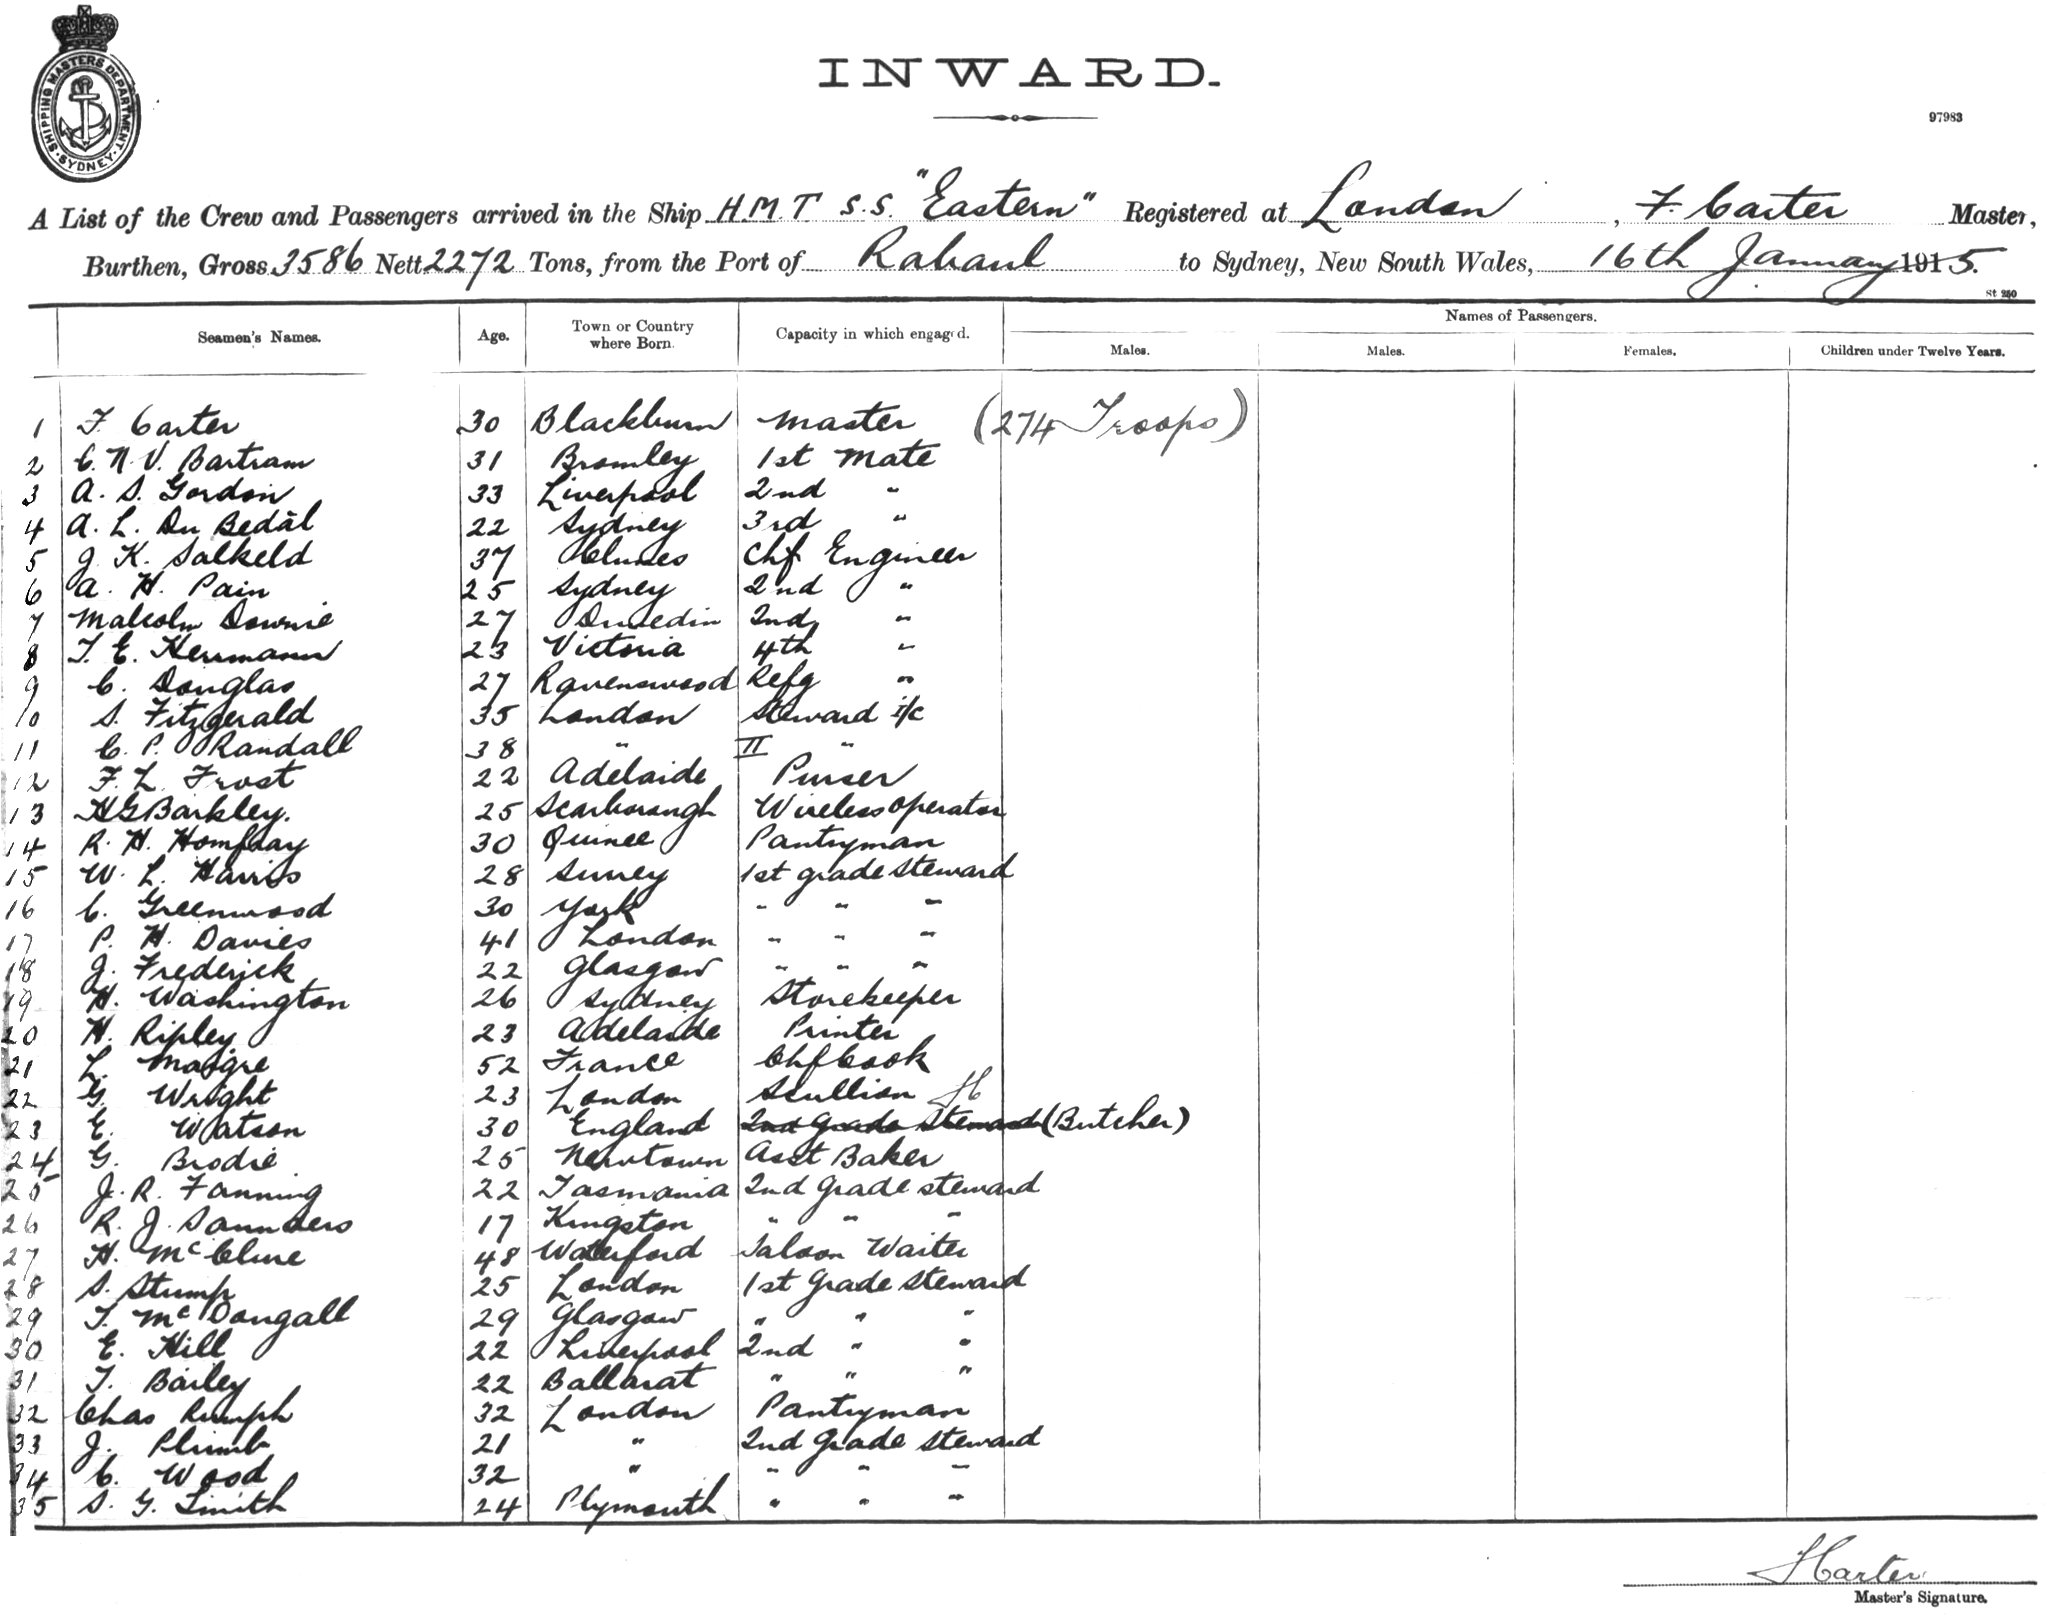 SHIPPING MASTERS DEPARTMENT
SYDNEY
INWARD.
97983
A List of the Crew and Passengers arrived in the Ship H.M.T S.S. "Eastern" Registered at London, F. Carter Master,
Burthen, Gross 3586 Nett 2272 Tons, from the Port of Rabaul to Sydney, New South Wales, 16th January 1915.
St 250
Seamen's Names. Age. Town or Country where Born. Capacity in which engaged. Names of Passengers.
Males. Males. Females. Children under Twelve Years.
1 F Carter 30 Blackburn Master (274 Troops)
2 C. N. V. Bartram 31 Bromley 1st Mate
3 A. S. Gordon 33 Liverpool 2nd "
4 A. L. Du Bedàt 22 Sydney 3rd "
5 J. K. Salkeld 37 Clunes Chf Engineer
6 A. H. Pain 25 Sydney 2nd "
7 Malcolm Downie 27 Dunedin 2nd "
8 T. E. Herrmann 23 Victoria 4th "
9 C. Douglas 27 Ravenswood Refg "
10 S. Fitzgerald 35 London Steward i/c
11 C. P. Randall 38 " II "
12 F. L. Frost 22 Adelaide Purser
13 H G Barkley. 25 Scarborough Wireless Operator
14 R. H. Homfray 30 Pantryman
15 W. L. Harris 28 Surrey 1st grade steward
16 C. Greenwood 30 York " " "
17 P. H. Davies 41 London " " "
18 J. Frederick 22 Glasgow " " "
19 H. Washington 26 Sydney Storekeeper
20 H. Ripley 23 Adelaide Printer
21 L. Maigre 52 France Chf Cook
22 G. Wright 23 London Scullion
23 E. Watson 30 England 2nd Grade Steward (Butcher)
24 G. Brodie 25 Newtown Asst Baker
25 J. R. Fanning 22 Tasmania 2nd Grade steward
26 R. J. Saunders 17 Kingston " " "
27 H. McClure 48 Waterford Saloon Waiter
28 S. Stump 25 London 1st Grade Steward
29 T. McDougall 29 Glasgow " " "
30 E. Hill 22 Liverpool 2nd " "
31 T. Bailey 22 Ballarat " " "
32 Chas Rumph 32 London Pantryman
33 J. Plumb 21 " 2nd Grade Steward
34 C. Wood 32 " " " "
35 S. G. Smith 24 Plymouth " " "
F Carter
Master's Signature.